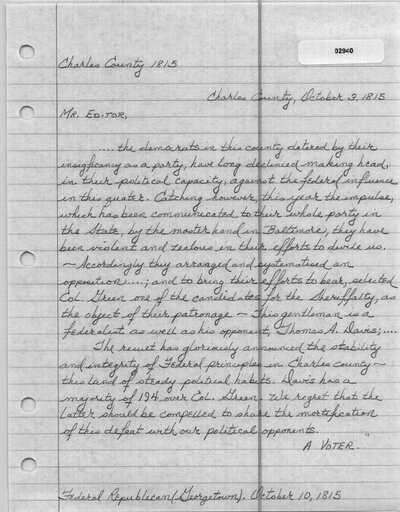 02940
Charles County 1815
Charles County, October 3, 1815
MR. EDITOR,
.... the democrats in this county detered by their
insignficancy as a party, have long declined making head,
in their political capacity, against the federal influence
in this quater. Catching however, this year the impulse,
which has been communicated to their whole party in
the State, by the master hand in Baltimore, they have
been violent and zealous in their efforts to divide us.
~ Accordingly they arranged and systematised an
opposition....; and to bring their efforts to bear, selected
Col. Green one of the candidates for the Shereffalty, as
the object of their patronage ~ This gentleman is a
federalist as well as his opponent, Thomas A. Davis;....
The result has gloriously announced the stability
and integrity of Federal principles in Charles County ~
this land of steady political habits. Davis has a
majority of 194 over Col. Green. We regret that the
latter should be compelled to share the mortification
of this defeat with our political opponents.
A VOTER."
Federal Republican (Georgetown). October 10, 1815